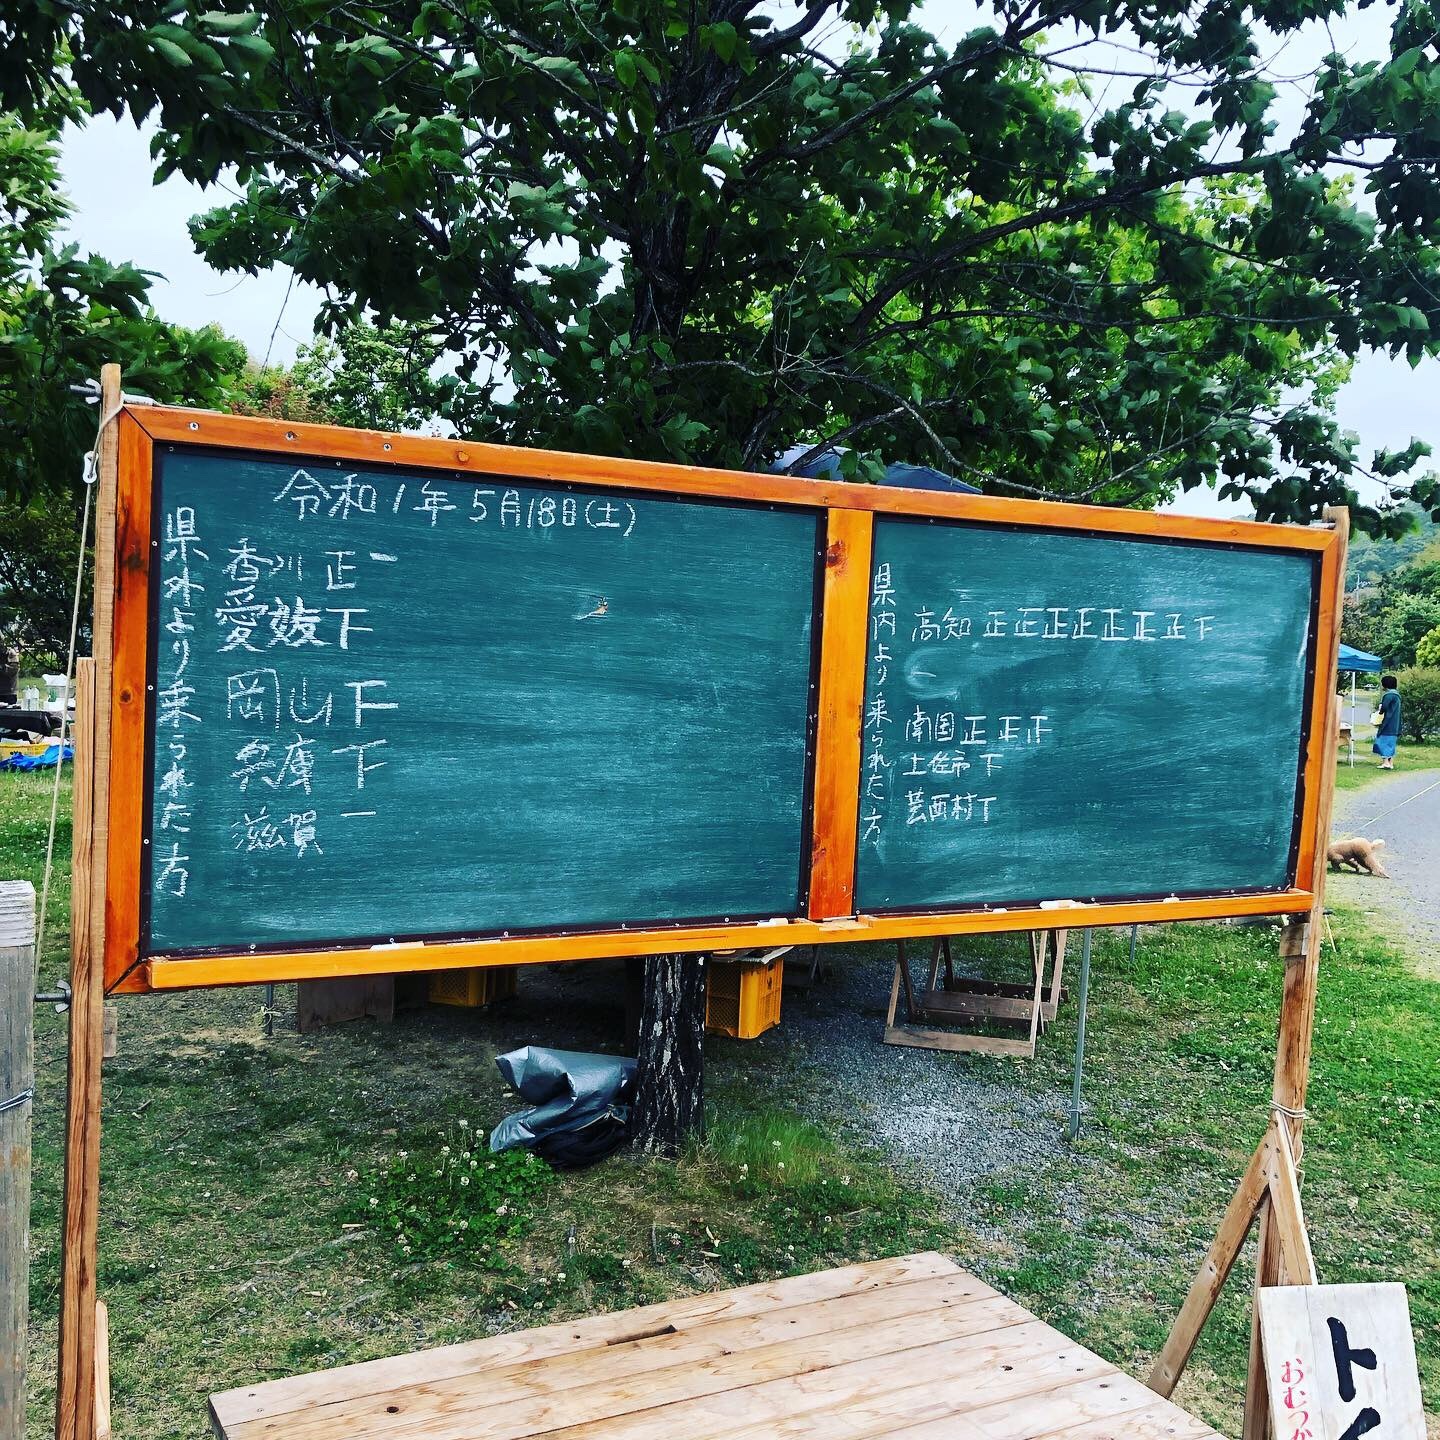 令和1年5月18日(土)
県外より来られた方
香川 正一
愛媛 下
岡山 下
兵庫 下
滋賀 一
県内より来られた方
高知 正正正正正正正下
南国 正正正
土佐市 下
芸西村 丅
トイ
おむつか